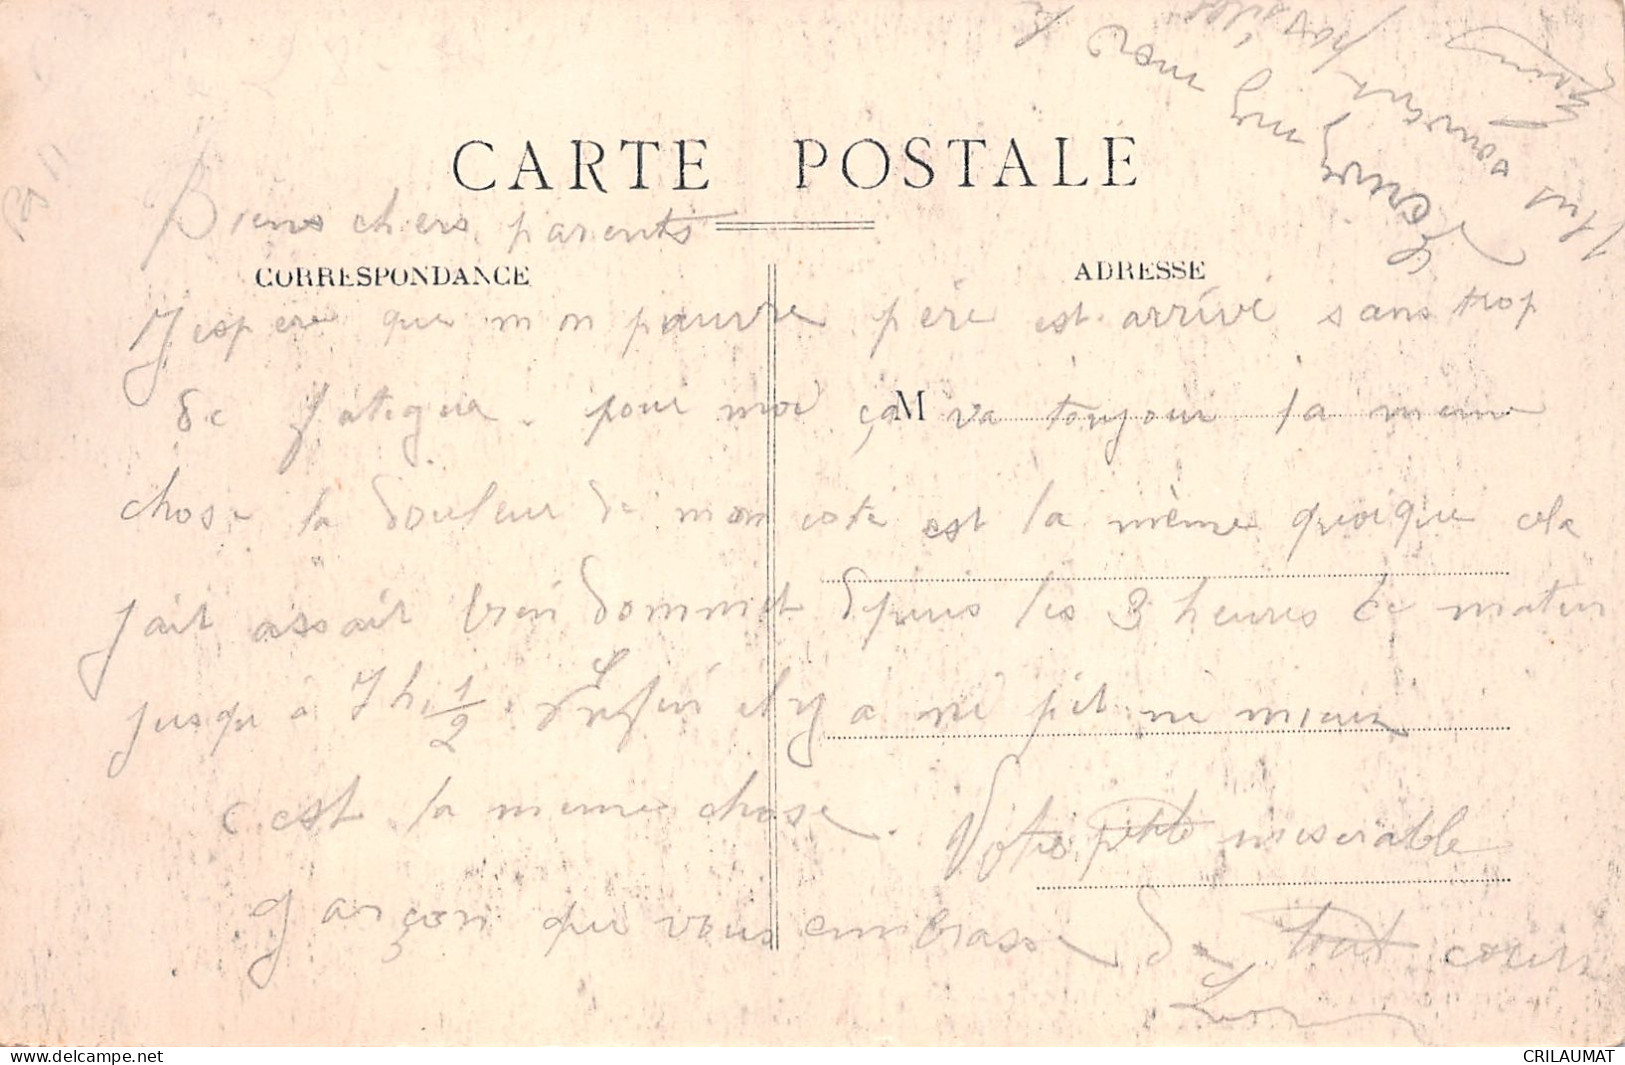 CARTE POSTALE
Biens chers parents
CORRESPONDANCE
ADRESSE
J espere que mon pauvre père est arrivé sans trop
de fatigue. pour moi ça va toujour la meme
M
chose la douleur de mon coté est la même quoique cela
jait assait bien dormit depuis les 3 heures de matin
jusqu à 7 h. 1/2. Enfin il y a ni pit ni mieux
c. est la meme chose. Votre petit miserable
garçon qui vous embrasse de tout coeur
Leon
CRILAUMAT